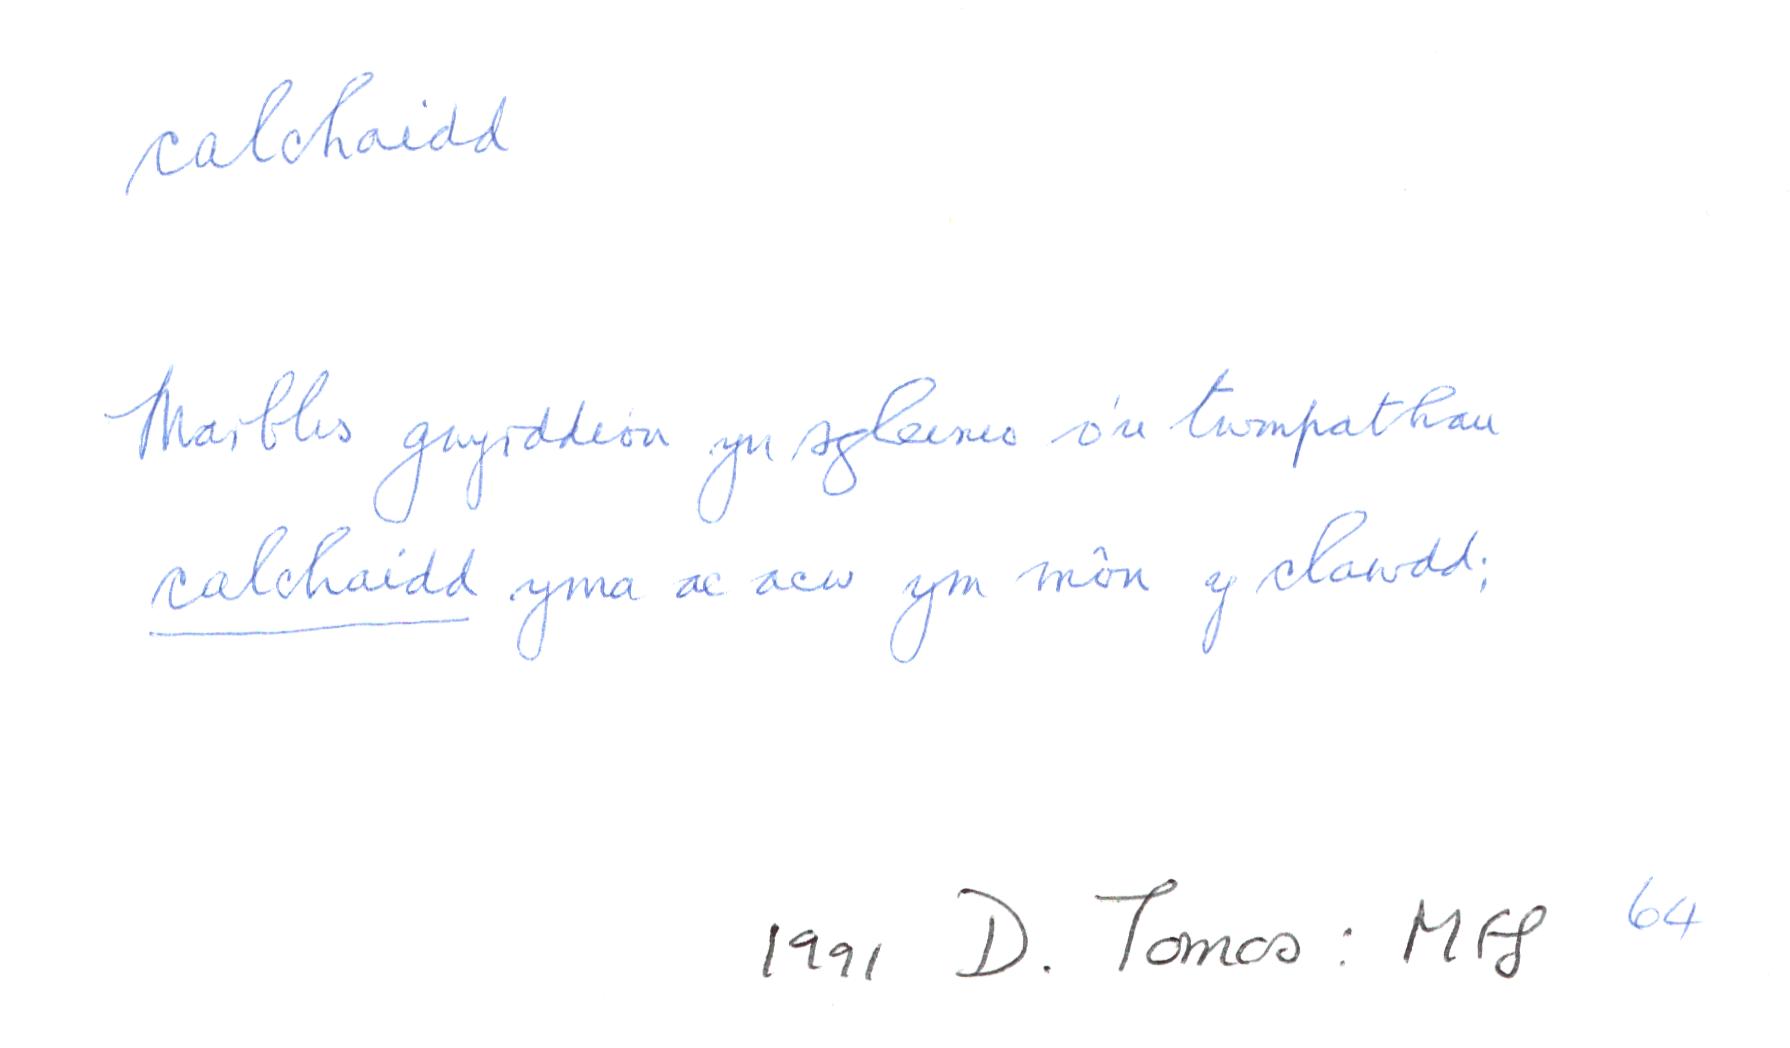 calchaidd
Marbles gwyrddion yn sgleinio o'u twmpathau
calchaidd yma ac acw ym môn y clawdd;
1991 D. Tomos : 64